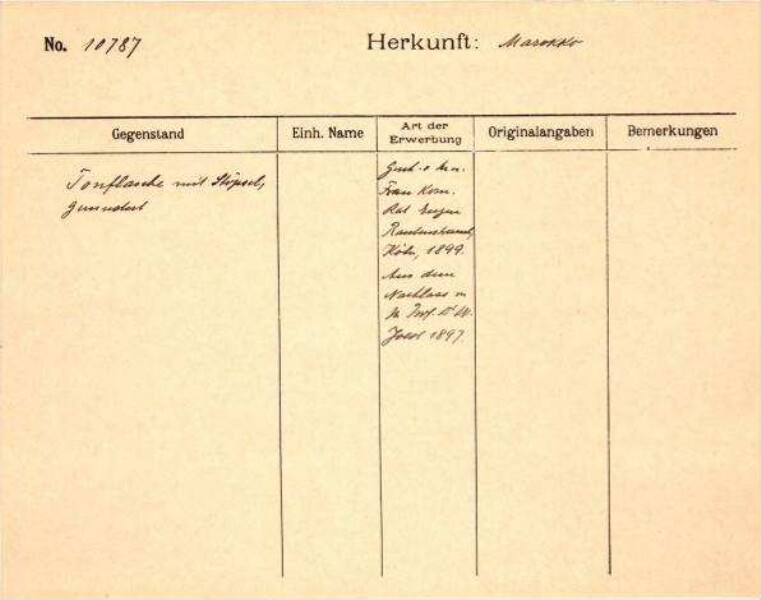 No. 10787 Herkunft: Marokko
Gegenstand Einh. Name Art der Erwerbung Originalangaben Bemerkungen
Tonflasche mit Stöpsel,
Frau Kom.
Rat Eugen
Rautenstrauch,
Köln, 1899.
Aus dem
Nachlass v.
Prof. Dr W.
Joest 1897.